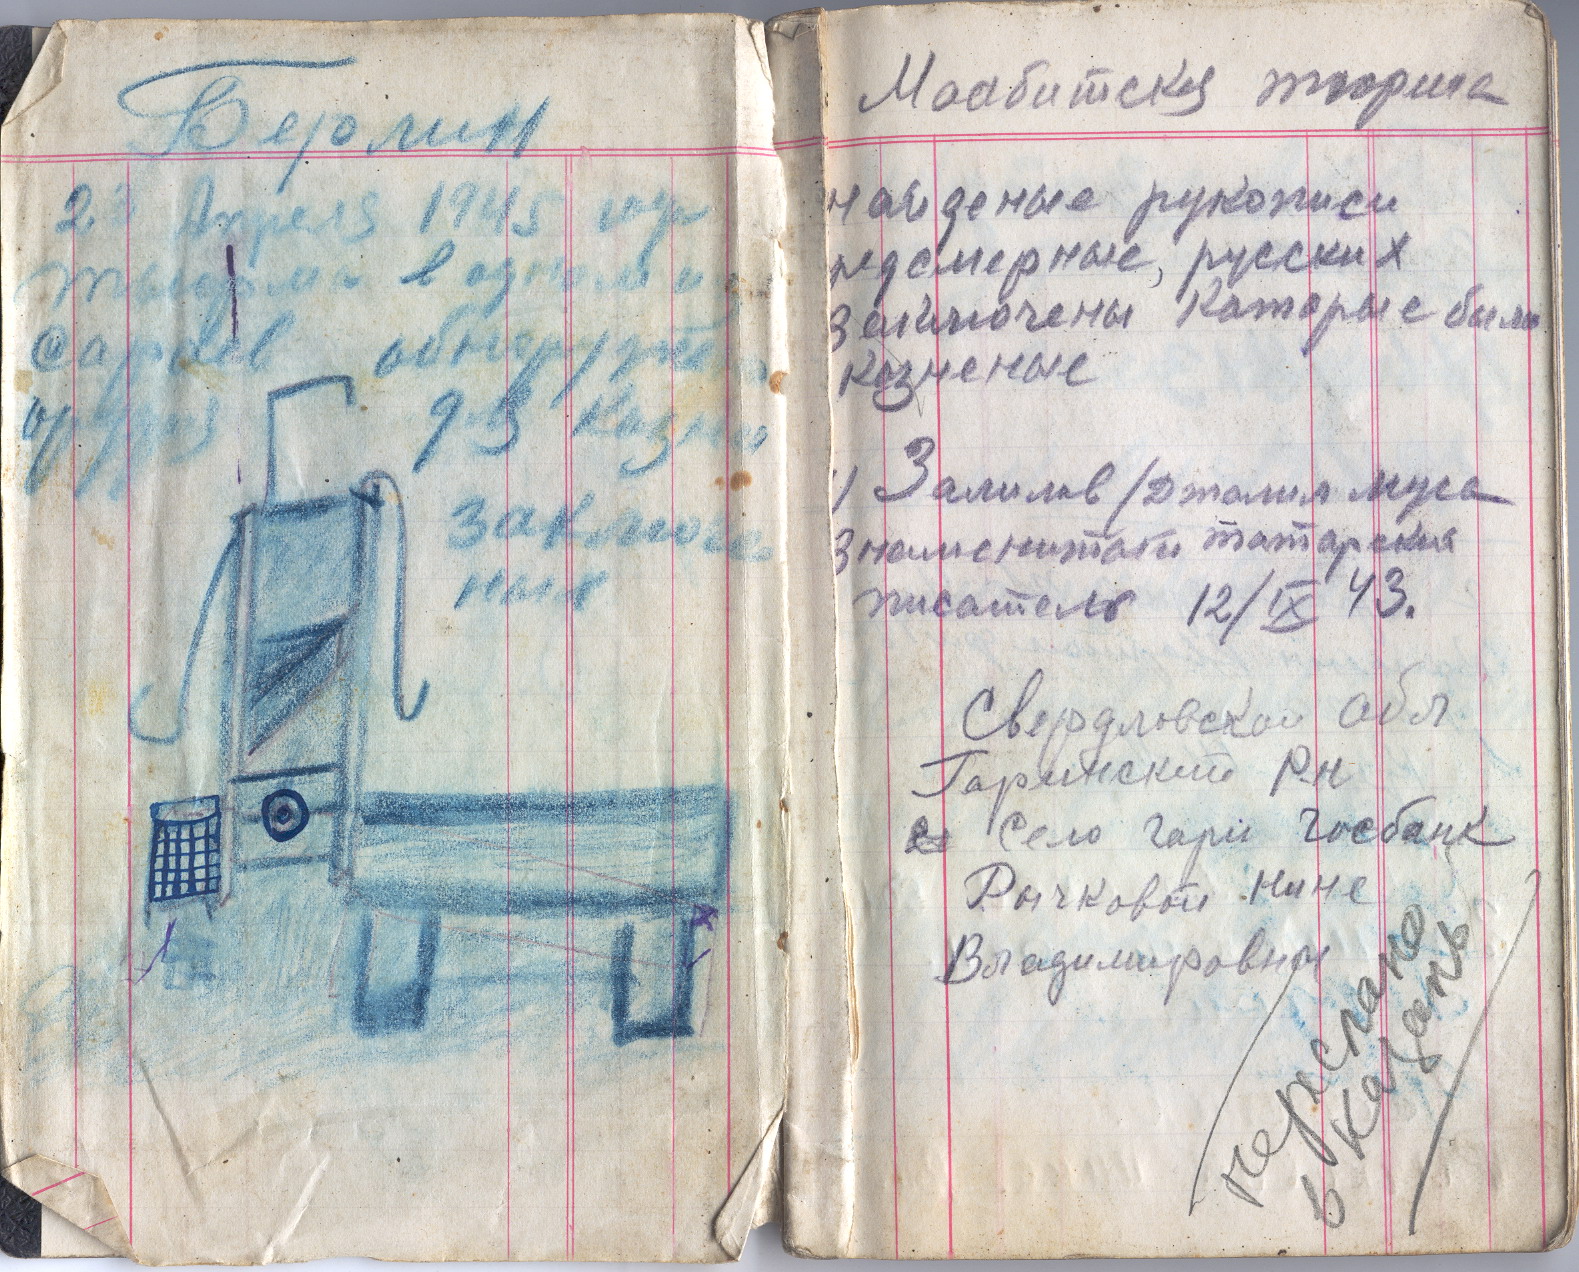 Берлин
2 Апреля 1945
тюрьма в одном и
сараев обнаружен
орудия для казни
заключе
ных
Моабитская тюрма
найденые рукописи
редсмерные, русских
заключены Каторые были
казненые
1) Залилов /Джалил муса
Знаменитати татарския
писатель 12/IX 43.
Свердловской обл
Гаринский Рн
село гари Госбанк
Рычковой нине
Владимировны
переслано
в Казань